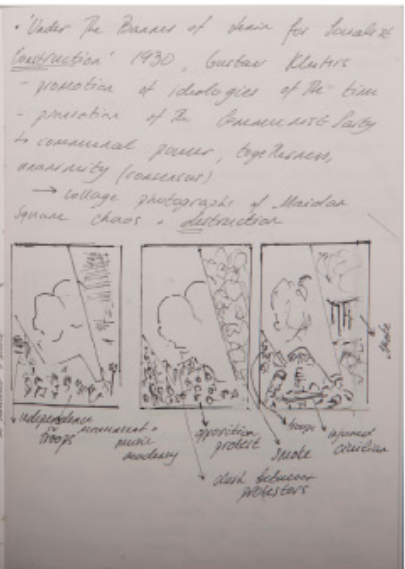 • 'Under The Banner of Lenin for Socialist
Construction' 1930, Gustav Klutsis
- promotion of ideologies of The time
- promotion of The Communist Party
↳ communal power, togetherness,
unanimity (consensus)
→ collage photographs of Maidan
Square chaos + destruction
independence
troops monument + music academy
opposition protest
clash between protestors
smoke
troops
injured civilian
smoke